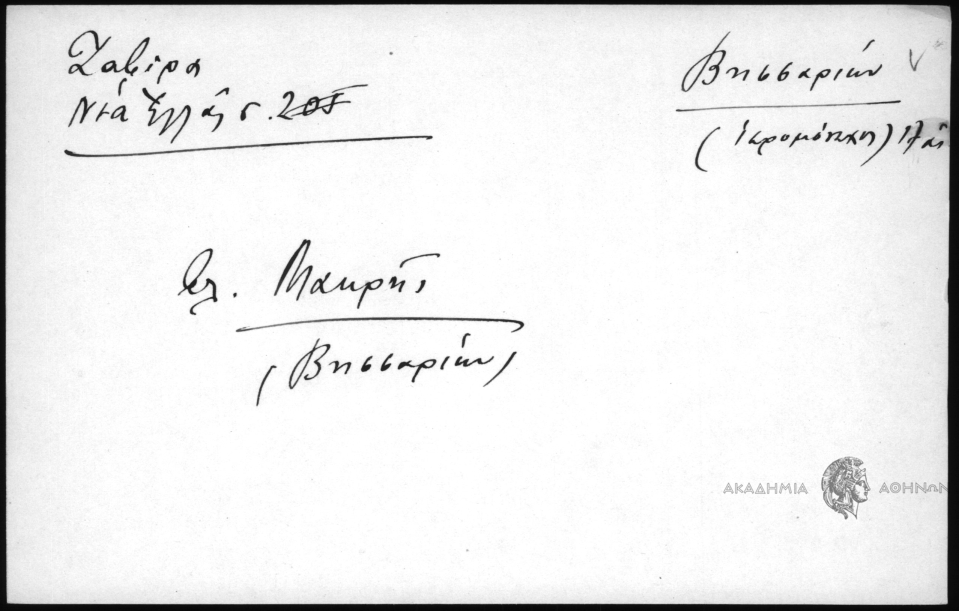 Ζαβίρα
Νέα Ἑλλὰς σ. 205
Βησσαρίων
(ἱερομόναχος)
βλ. Μακρῆς
(Βησσαρίων)
ΑΚΑΔΗΜΙΑ ΑΘΗΝΩΝ